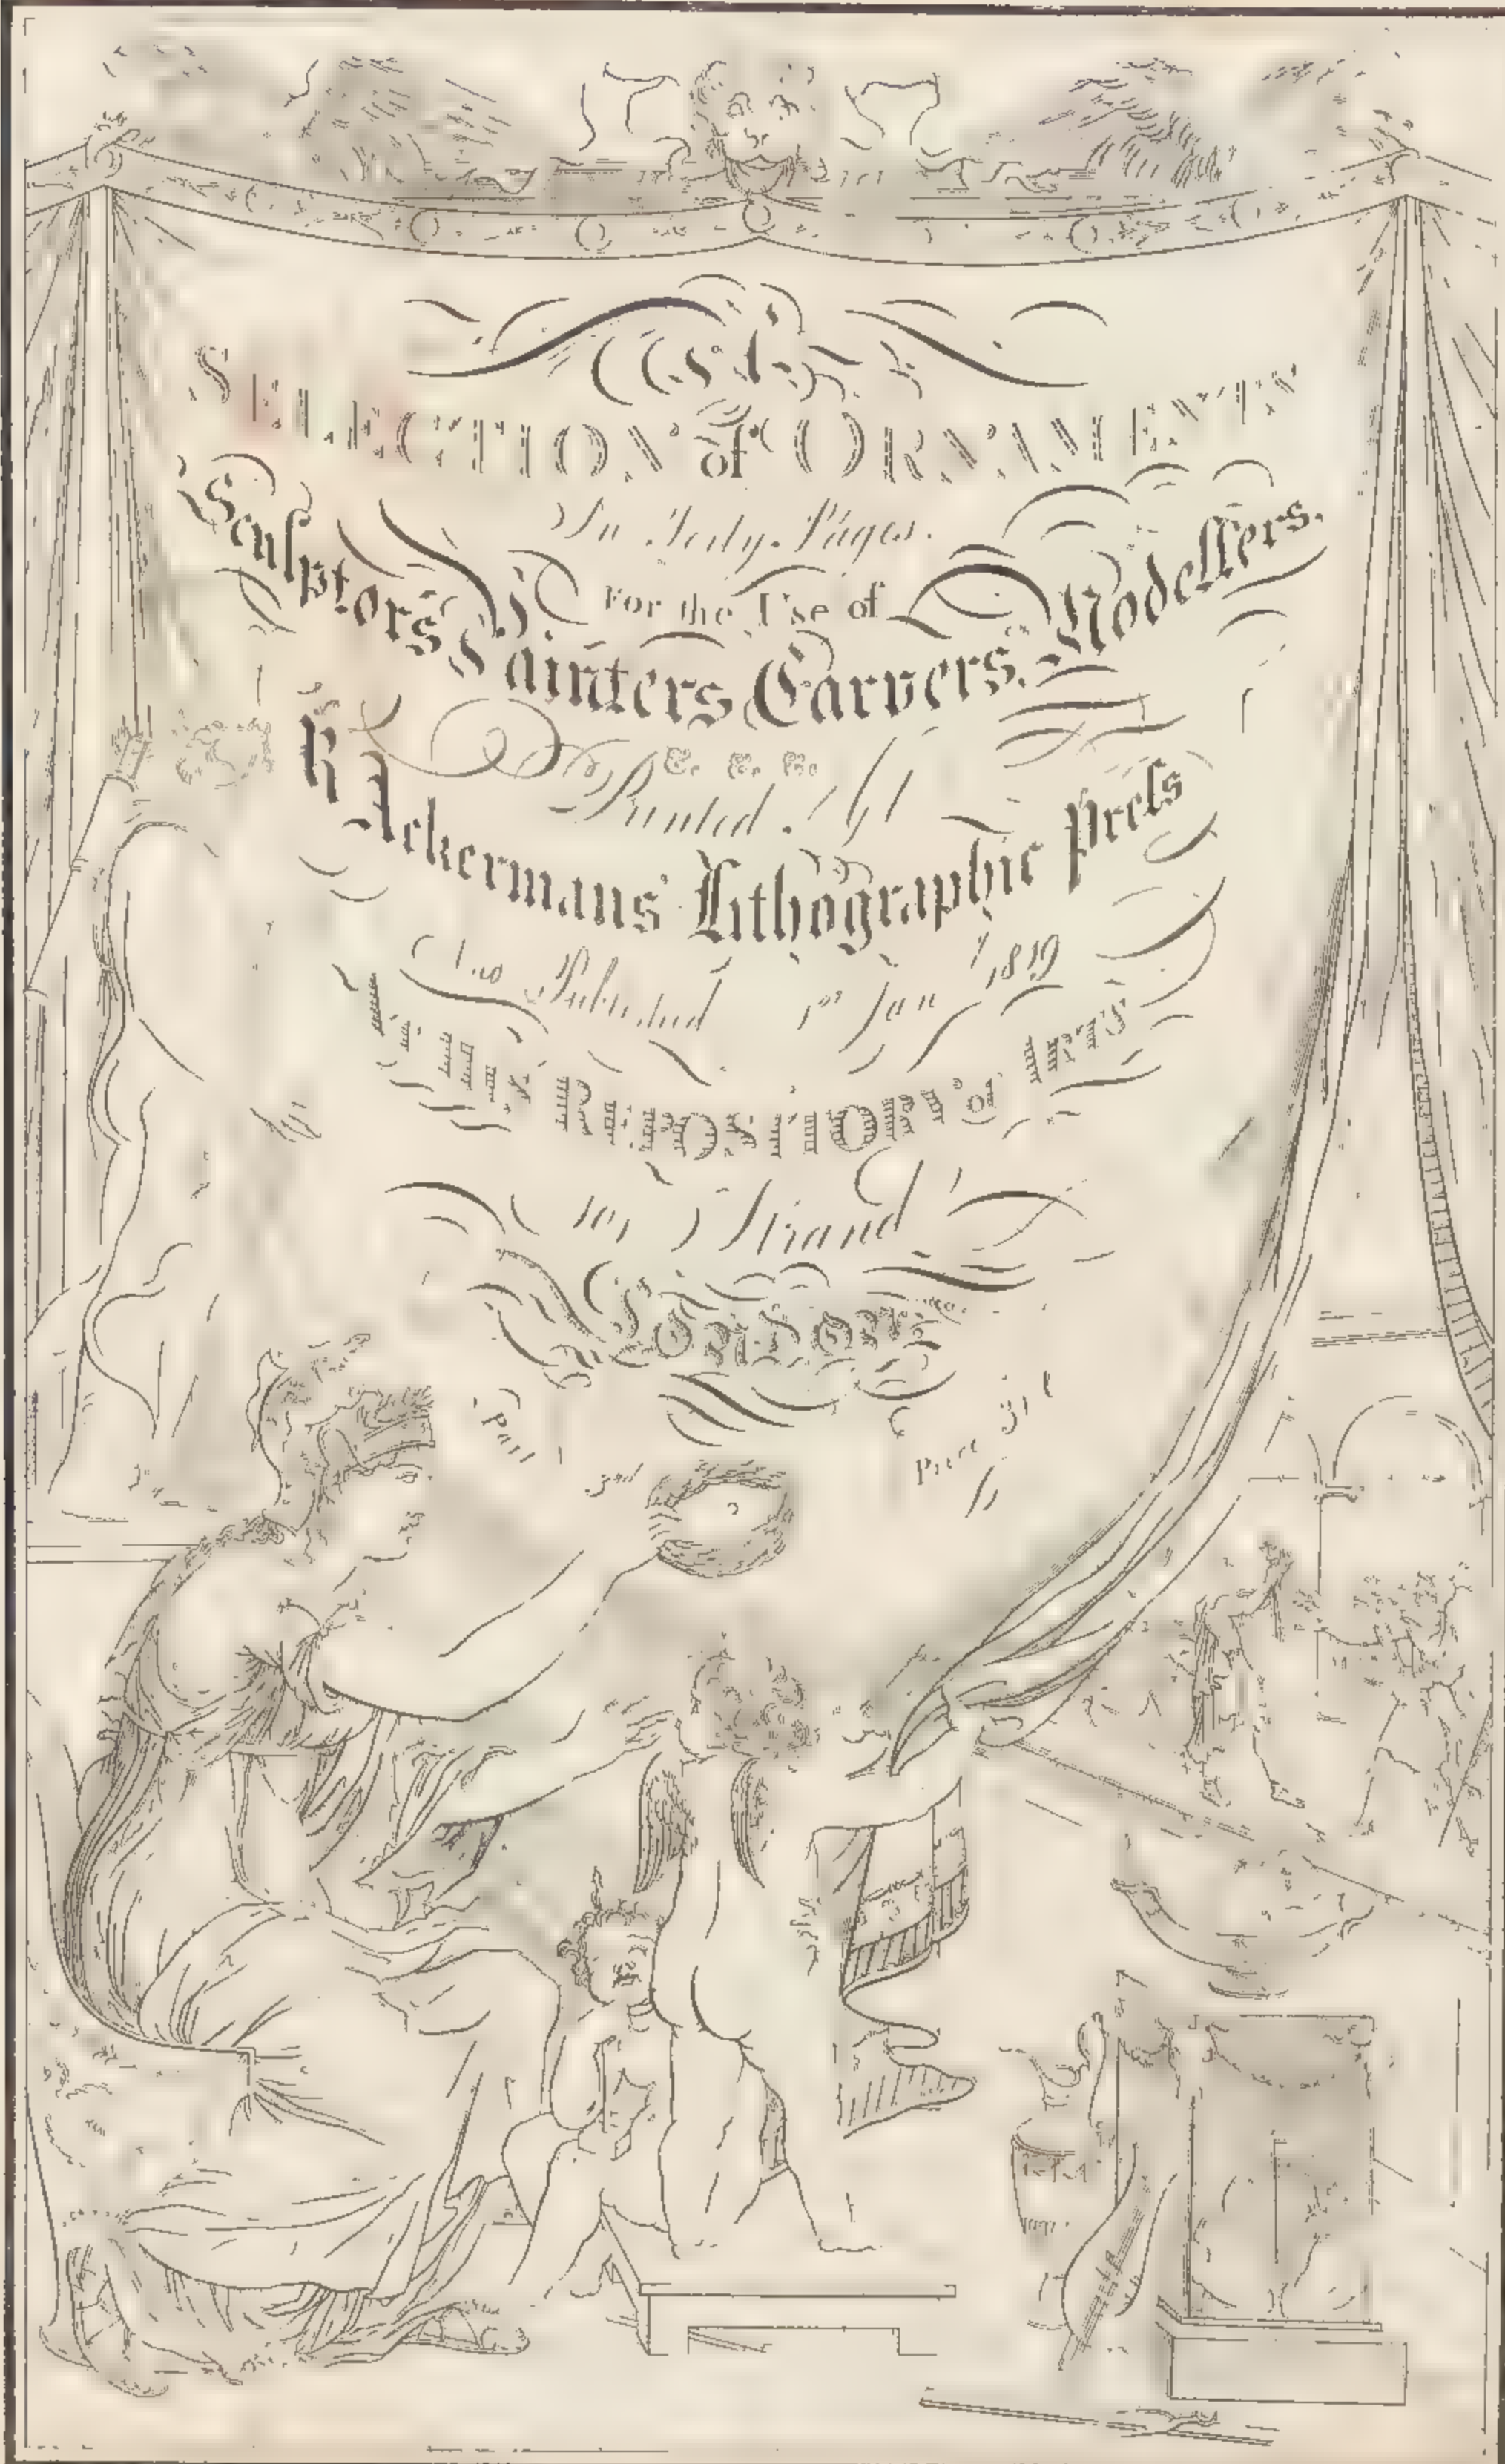 SELECTION of ORNAMENTS
In Forty Pages.
For the Use of
Sculptors Painters Carvers Modellers.
&c. &c. &c.
Printed at
R Ackermans Lithographic Press
And Published 1st Jan 1819
at the REPOSITORY of ARTS
101 Strand
London
Part
3rd
Price